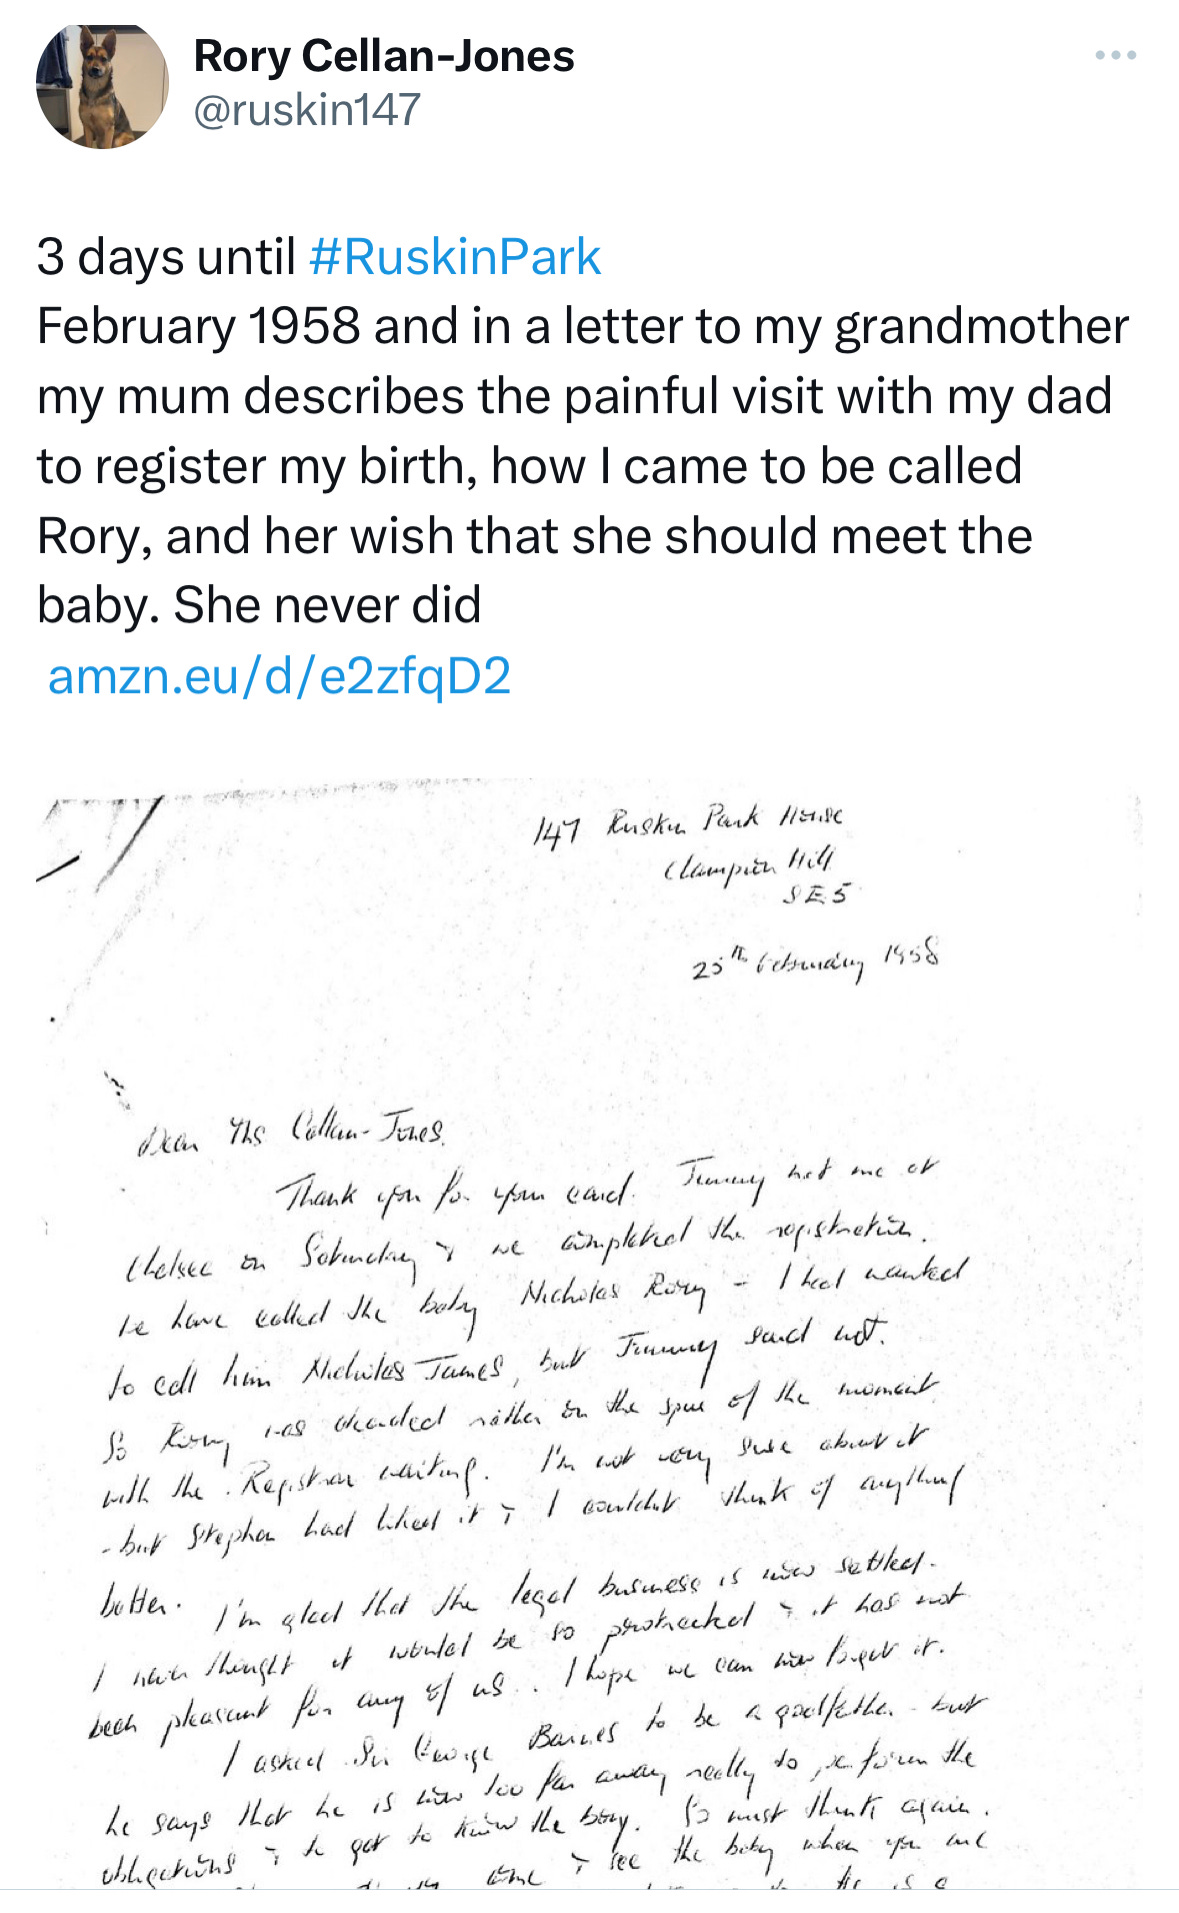 Rory Cellan-Jones
@ruskin147
3 days until #RuskinPark
February 1958 and in a letter to my grandmother
my mum describes the painful visit with my dad
to register my birth, how I came to be called
Rory, and her wish that she should meet the
baby. She never did
amzn.eu/d/e2zfqD2
147 Ruskin Park House
Champion Hill
SE5
25th February 1958
Dear Mrs Cellan-Jones,
Thank you for your card. Jimmy met me at
Chelsea on Saturday & we completed the registration.
We have called the baby Nicholas Rory - I had wanted
to call him Nicholas James, but Jimmy said not.
So Rory was decided rather on the spur of the moment
with the Registrar waiting. I'm not very sure about it
- but Stephen had liked it & I couldn't think of anything
better. I'm glad that the legal business is now settled.
I never thought it would be so protracted & it has not
been pleasant for any of us.. I hope we can now forget it.
I asked Sir George Barnes to be a godfather - but
he says that he is now too far away really to perform the
obligations & to get to know the boy. So must think again.
come & see the baby when you are
He is a